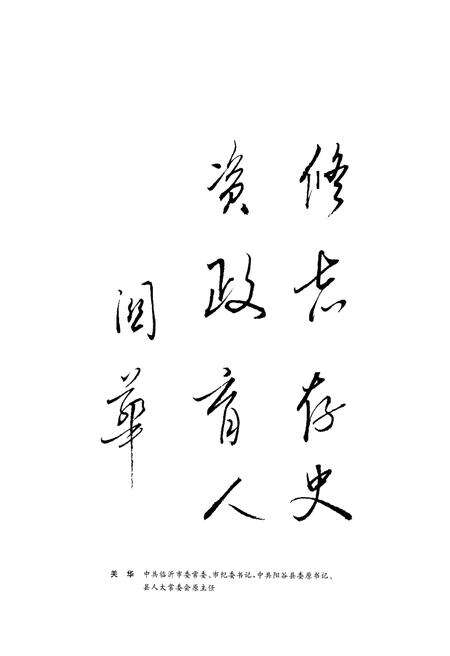 修志存史
资政育人
関華
关 华 中共临沂市委常委、市纪委书记，中共阳谷县委原书记、
县人大常委会原主任